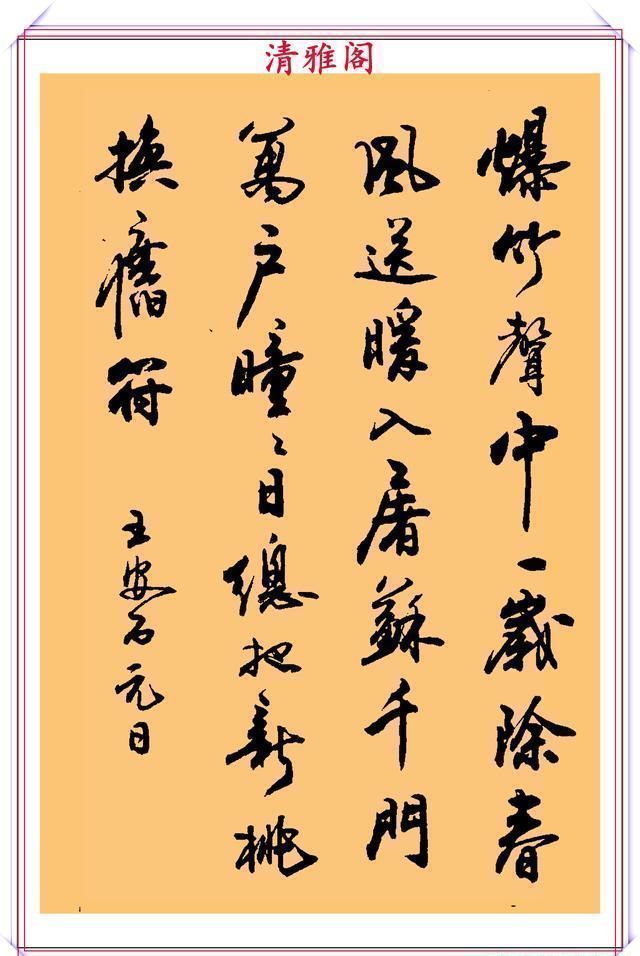 清雅阁
爆竹聲中一歲除春
風送暖入屠蘇千門
萬户曈〻日總把新桃
換舊符
王安石元日